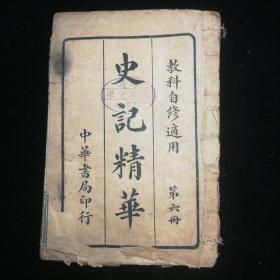 教科自修適用
第六冊
史記精華
中華書局印行